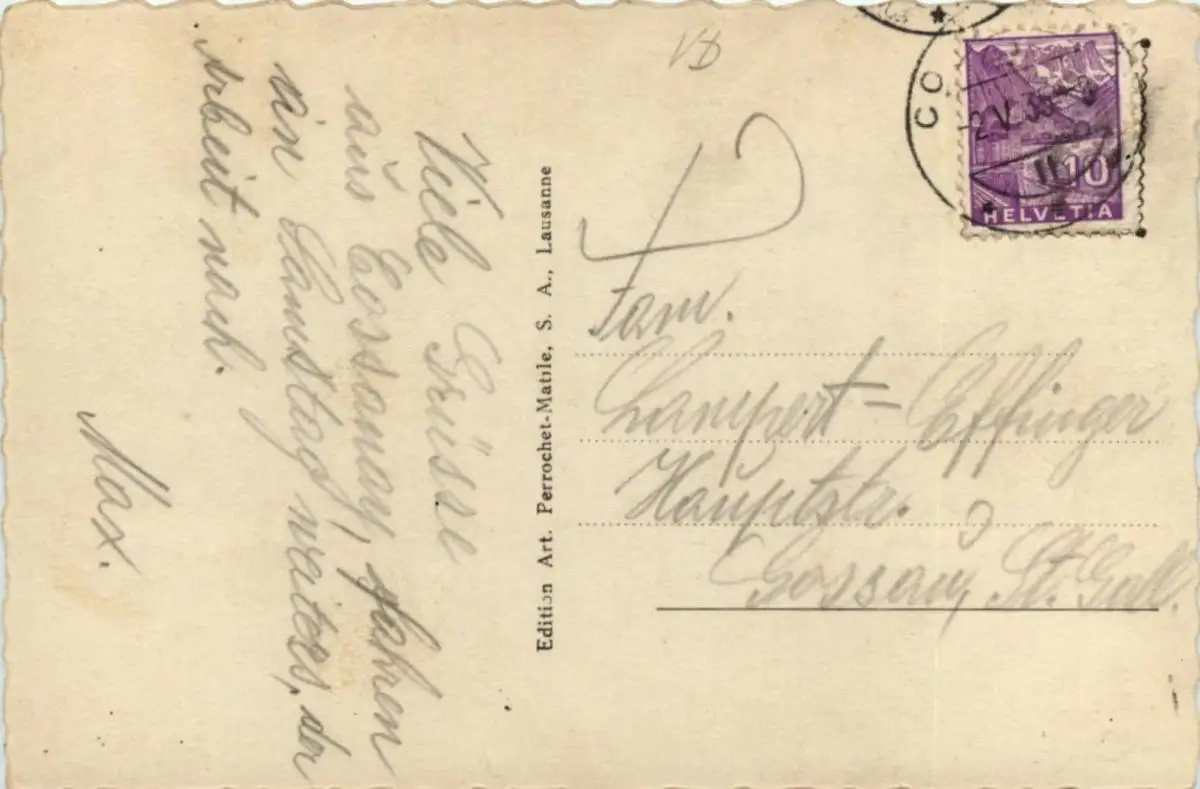 Viele Grüsse
aus Cossonay, fahren
am Samstag weiter, der
Arbeit nach.
Max.
Edition Art. Perrochet-Matile, S. A., Lausanne
VD
Fam.
Lampert-Effinger
Hauptstr.
Gossau, St. Gall.
CO
2 V
10
HELVETIA